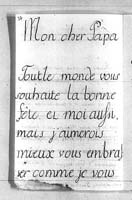 Mon cher Papa
Tout le monde vous
souhaite la bonne
fête, et moi aussi,
mais j'aimerois
mieux vous embras
ser comme je vous